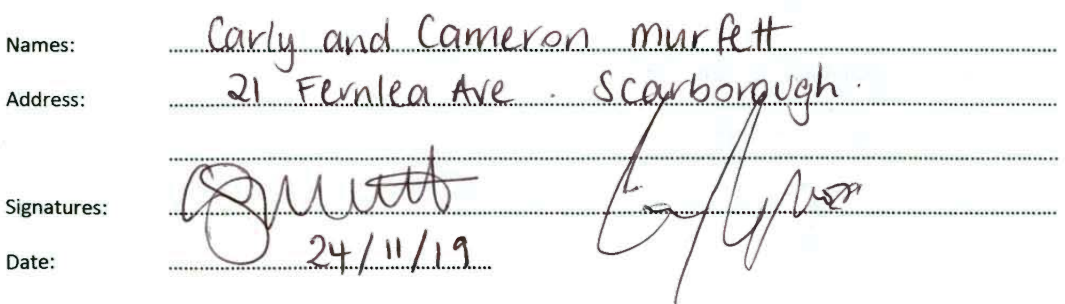 Names: Carly and Cameron Murfett
Address: 21 Fernlea Ave . Scarborough .
Signatures:
Date: 24/11/19